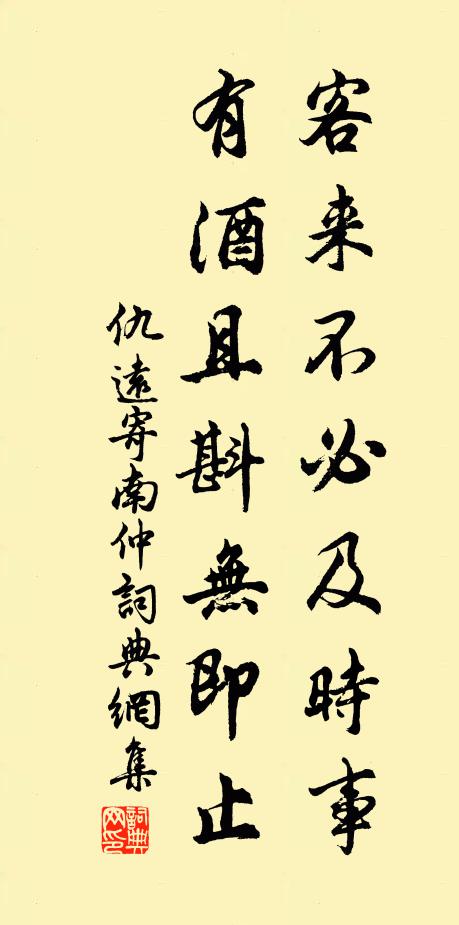 客来不必及時事
有酒且斟無即止
仇遠寄南仲詞典網集
詞典网印